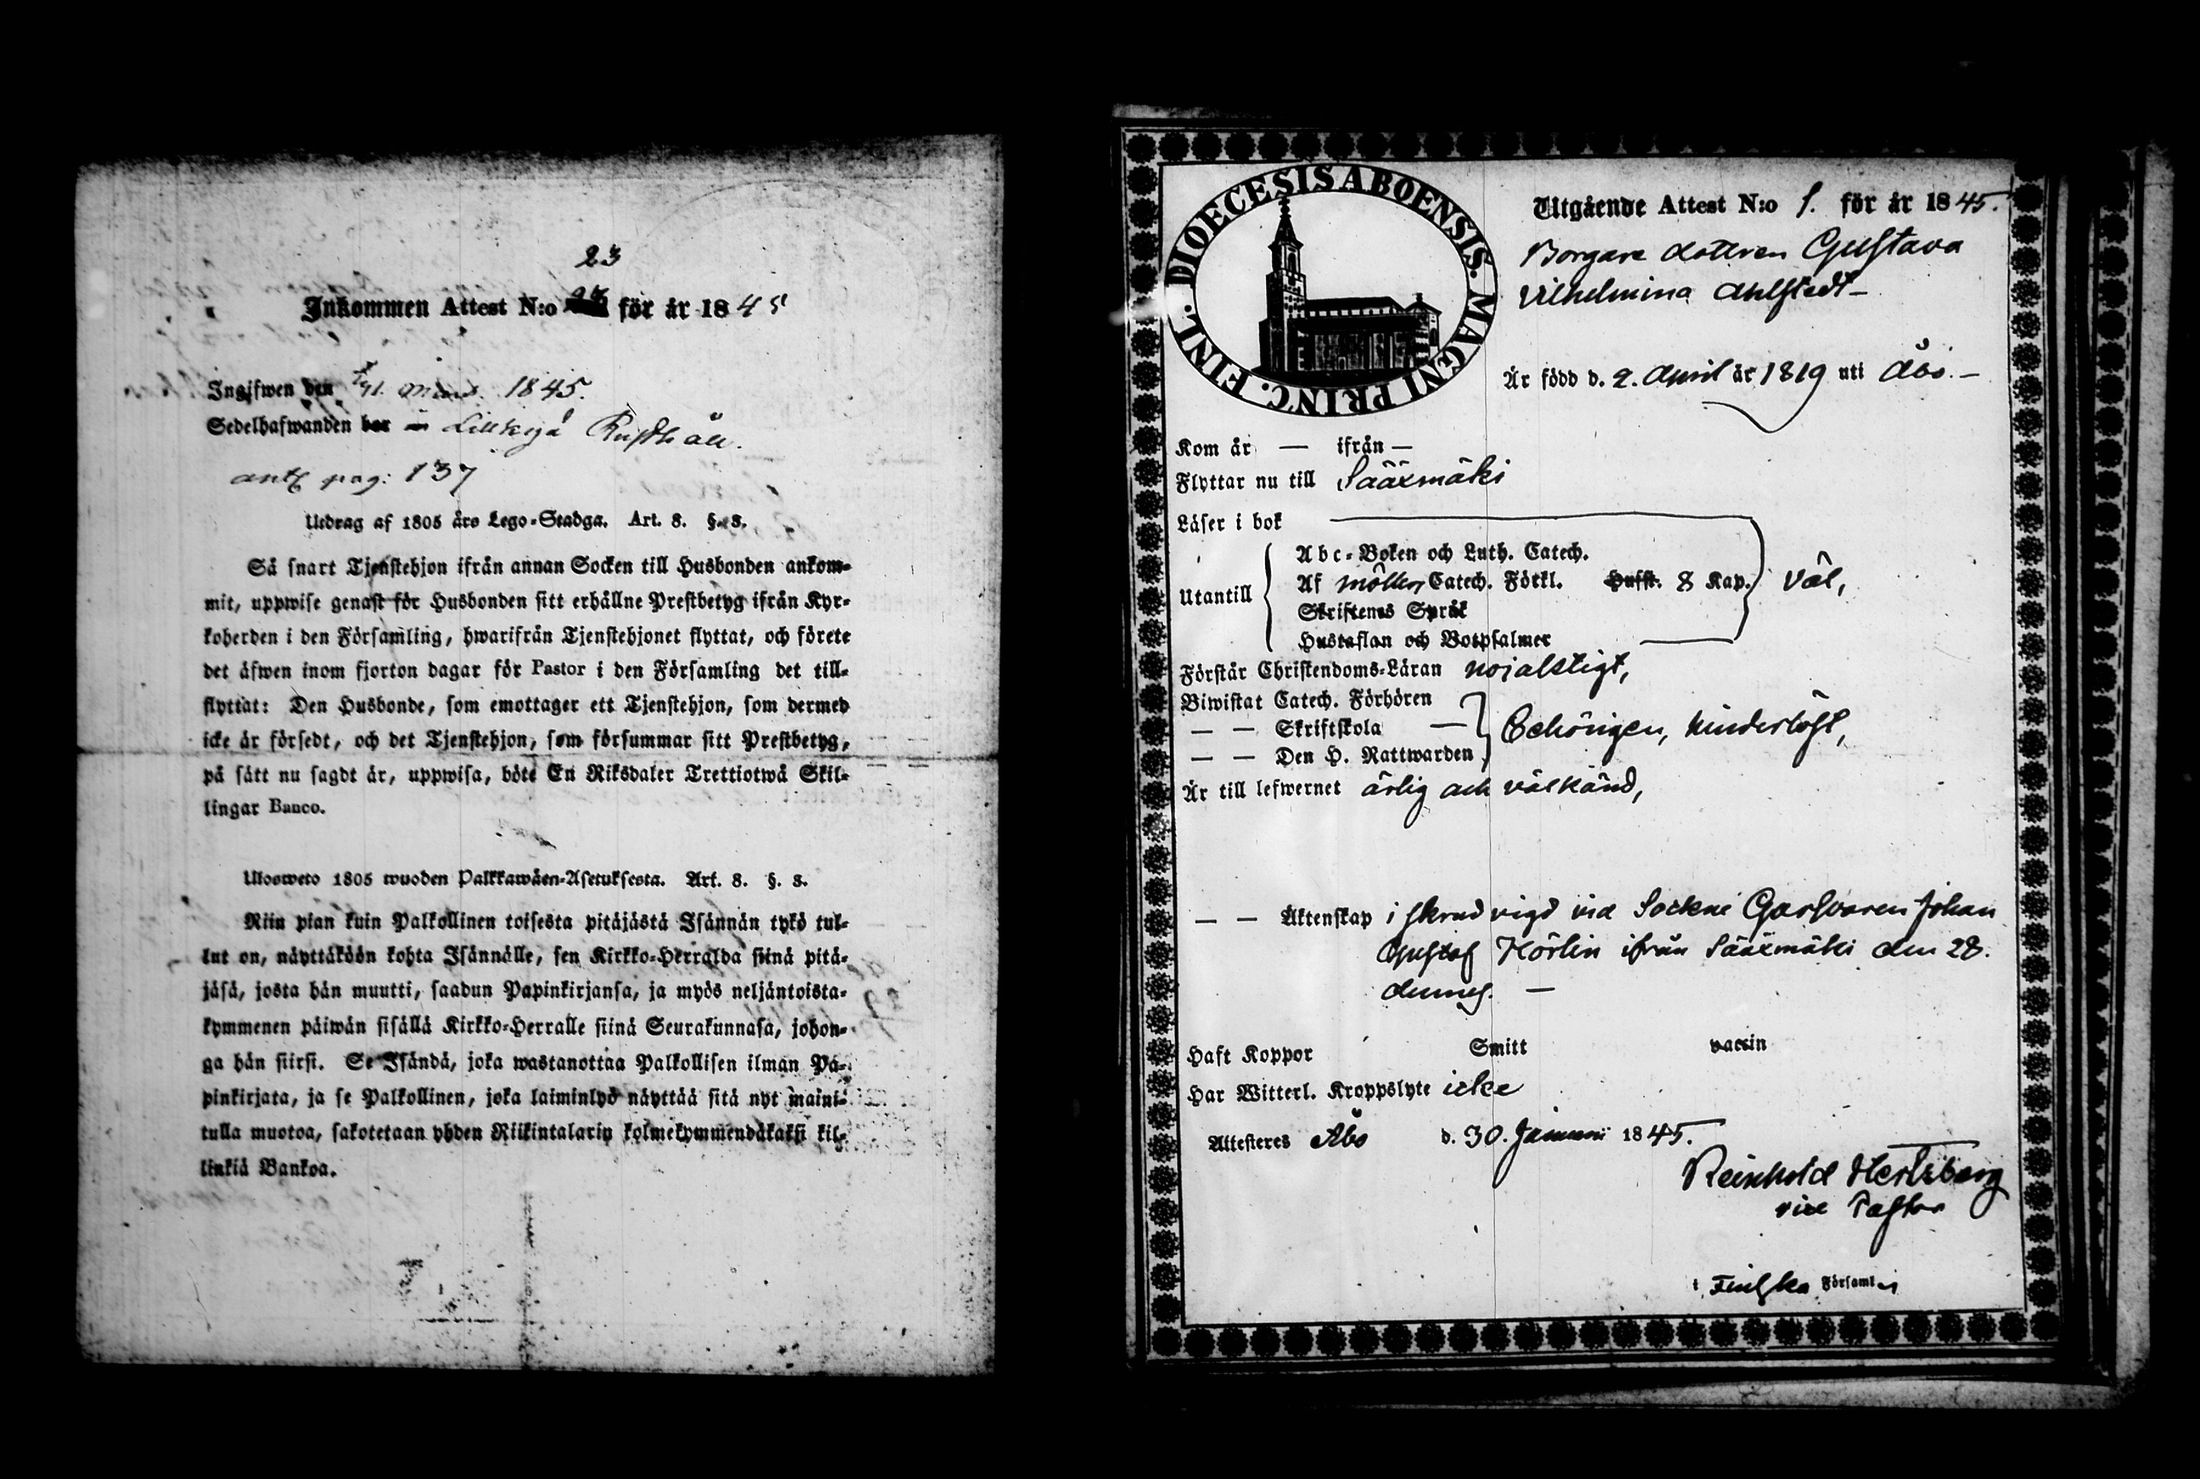 23
Inkommen Attest N:o för år 1845
Ingifwen den 1845.
Sedelhafwanden bor
antz pag: 137
Utdrag af 1805 års Lego-Stadga. Art. 8. §. 3.
Så snart Tjenstehjon ifrån annan Socken till Husbonden ankom-
mit, uppwise genast för Husbonden sitt erhållne Prestbetyg ifrån Kyr-
koherden i den Församling, hwarifrån Tjenstehjonet flyttat, och förete
det äfwen inom fjorton dagar för Pastor i den Församling det till-
flyttat: Den Husbonde, som emottager ett Tjenstehjon, som dermed
icke är försedt, och det Tjenstehjon, som försummar sitt Prestbetyg,
på sätt nu sagdt är, uppwisa, böte En Riksdaler Trettiotwå Skil-
lingar Banco.
Ulosweto 1805 wuoden Palkkawäen-Asetuksesta. Art. 8. §. 3.
Niin pian kuin Palkollinen toisesta pitäjästä Isännän tykö tul-
lut on, näyttäköön kohta Isännälle, sen Kirkko-Herralda siinä pitä-
jäsä, josta hän muutti, saadun Papinkirjansa, ja myös neljäntoista-
kymmenen päiwän sisällä Kirkko-Herralle siinä Seurakunnasa, johon-
ga hän siirsi. Se Isändä, joka wastanottaa Palkollisen ilman Pa-
pinkirjata, ja se Palkollinen, joka laiminlyö näyttää sitä nyt maini-
tulla muotoa, sakotetaan yhden Riikintalarin kolmekymmendäkaksi kil-
linkiä Bankoa.
DIOECESIS ABOENSIS. MAGNI PRINC. FINL.
Utgående Attest N:o 1. för år 1845.
Borgare dottren Gustava
Vilhelmina Ahlstedt
Är född d. 2. April år 1819 uti Åbo.
Kom år — ifrån —
Flyttar nu till Sääxmäki
Läser i bok
Abc-Boken och Luth. Catech.
Utantill Af möllers Catech. Förkl. Hufst. 8 Kap. väl,
Skriftenes Språk
Hustaflan och Botpsalmer
Förstår Christendoms-Läran nöjaktigt,
Biwistat Catech. Förhören
— — Skriftskola — Behörigen, hinderlöst,
— — Den H. Nattwarden
Är till lefwernet ärlig och välkänd,
— — Äktenskap i Skrud vigd vid Sockne Garfvaren Johan
Gustaf Hörlin ifrån Sääxmäki den 28.
dennes. —
Haft Koppor Smitt vaccin
Har Witterl. Kroppslyte icke
Attesteres Åbo d. 30. Januari 1845.
Reinhold Hertzberg
vice Pastor
i Finska Församl